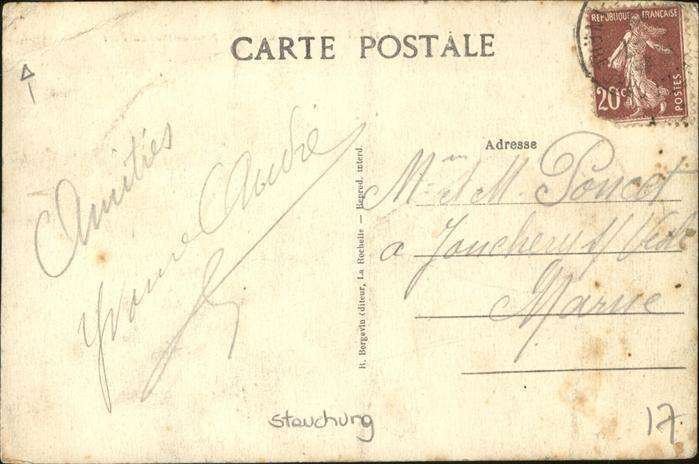 CARTE POSTALE
RÉPUBLIQUE FRANÇAISE
20c
POSTES
Amitiés
Yvonne André
Adresse
Mme et M. Poncet
à Jonchery s/ Vesle
Marne
R. Bergevin éditeur, La Rochelle — Reprod. interd.
stauchung
17